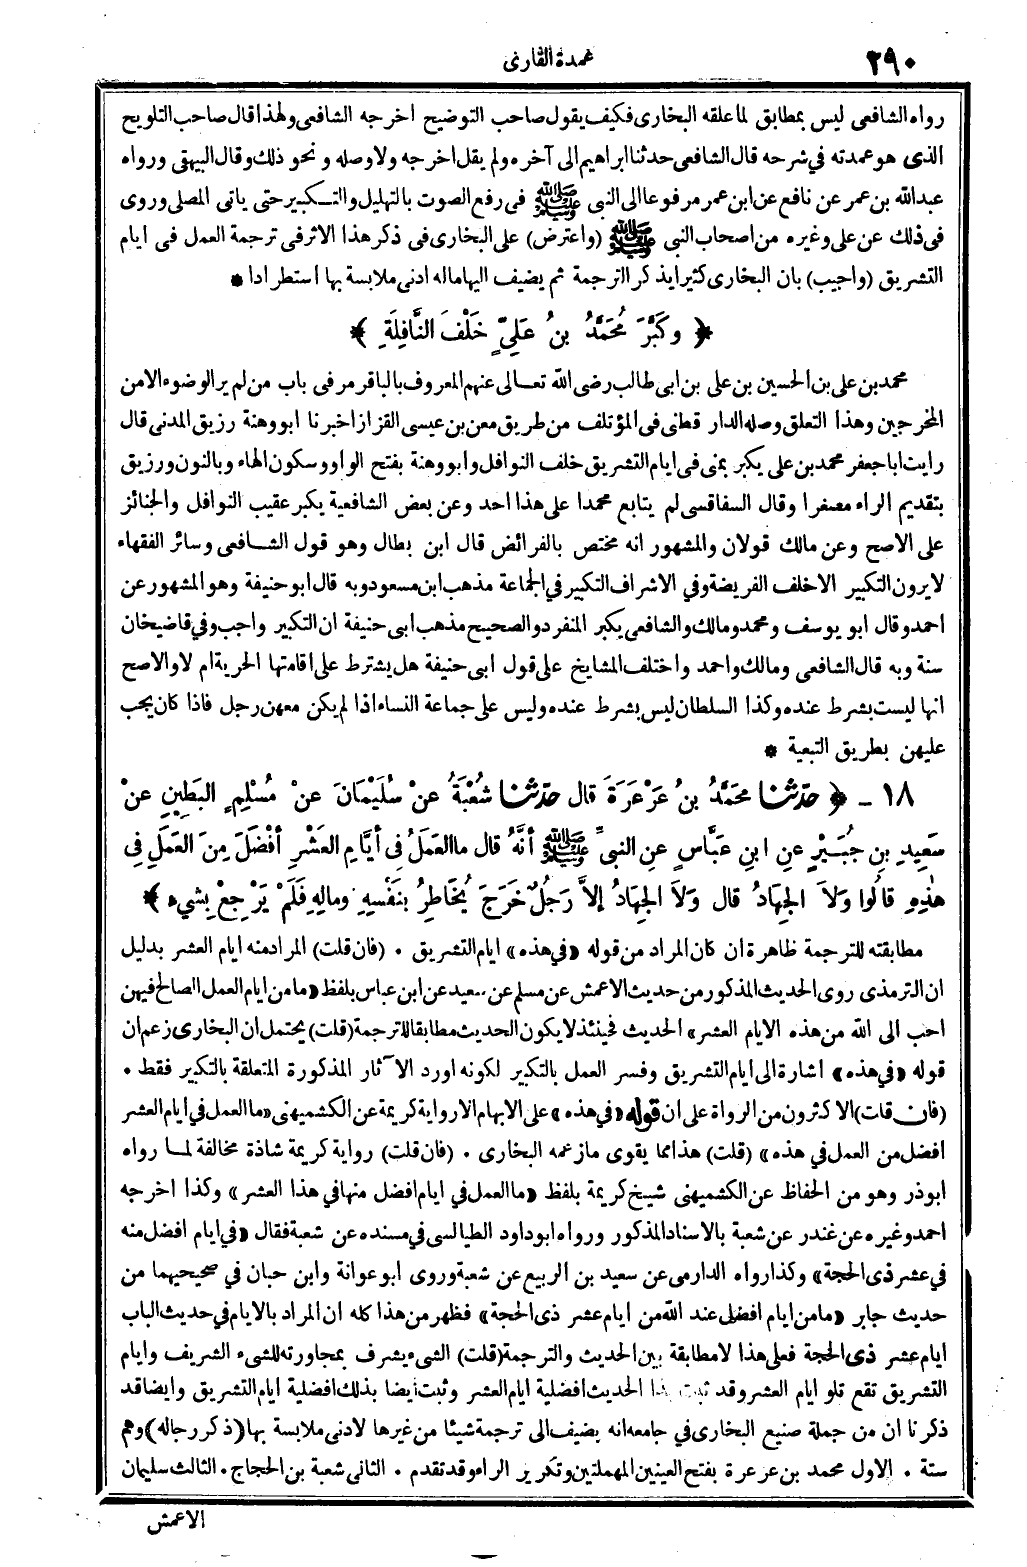 ٢٩٠
عمدة القارى
رواه الشافعى ليس بمطابق لما علقه البخارى فكيف يقول صاحب التوضيح اخرجه الشافعى ولهذا قال صاحب التلويح
الذى هو عمدته في شرحه قال الشافعى حدثنا ابراهيم الى آخره ولم يقل اخرجه ولا وصله و نحو ذلك وقال البيهقى ورواه
عبدالله بن عمر عن نافع عن ابن عمر مرفوعا الى النبى ﷺ فى رفع الصوت بالتهليل والتكبير حتى ياتى المصلى وروى
فى ذلك عن على وغيره من اصحاب النبى ﷺ (واعترض) على البخارى فى ذكر هذا الاثر فى ترجمة العمل فى ايام
التشريق (واجيب) بان البخارى كثيرا يذكر الترجمة ثم يضيف اليها ماله ادنى ملابسة بها استطرادا *
﴿ وكَبَّرَ مُحَمَّدُ بنُ عَلِيٍّ خَلْفَ النَّافِلَةِ ﴾
محمد بن على بن الحسين بن على بن ابى طالب رضى الله تعالى عنهم المعروف بالباقر مر فى باب من لم ير الوضوء الا من
المخرجين وهذا التعلق وصله الدار قطنى فى المؤتلف من طريق معن بن عيسى القزاز اخبرنا ابو وهنة رزيق المدنى قال
رايت ابا جعفر محمد بن على يكبر بمنى فى ايام التشريق خلف النوافل وابو وهنة بفتح الواو وسكون الهاء وبالنون ورزيق
بتقديم الراء مصغرا وقال السفاقسى لم يتابع محمدا على هذا احد وعن بعض الشافعية يكبر عقيب النوافل والجنائز
على الاصح وعن مالك قولان والمشهور انه مختص بالفرائض قال ابن بطال وهو قول الشافعى وسائر الفقهاء
لا يرون التكبير الا خلف الفريضة وفي الاشراف التكبير في الجماعة مذهب ابن مسعود وبه قال ابو حنيفة وهو المشهور عن
احمد وقال ابو يوسف ومحمد ومالك والشافعى يكبر المنفرد والصحيح مذهب ابى حنيفة ان التكبير واجب وفي قاضيخان
سنة وبه قال الشافعى ومالك واحمد واختلف المشايخ على قول ابى حنيفة هل يشترط على اقامتها الحرية ام لا والاصح
انها ليست بشرط عنده وكذا السلطان ليس بشرط عنده وليس على جماعة النساء اذا لم يكن معهن رجل فاذا كان يجب
عليهن بطريق التبعية *
١٨ - ﴿ حدّثنا محمَّدُ بنُ عَرْعَرَةَ قال حدّثنا شُعْبَةُ عنْ سُلَيْمَانَ عنْ مُسْلِمٍ البَطِينِ عنْ
سَعِيدِ بنِ جُبَيْرٍ عنِ ابنِ عَبَّاسٍ عنِ النبىِّ ﷺ أنَّهُ قال ما العَمَلُ فِى أيَّامِ العَشْرِ أفْضَلَ مِنَ العَمَلِ فِى
هٰذِهِ قالُوا وَلاَ الجِهَادُ قال وَلاَ الجِهَادُ إلاَّ رَجُلٌ خَرَجَ يُخَاطِرُ بِنَفْسِهِ ومالِهِ فَلَمْ يَرْجِعْ بِشَىءٍ ﴾
مطابقته للترجمة ظاهرة ان كان المراد من قوله «في هذه» ايام التشريق . (فان قلت) المراد منه ايام العشر بدليل
ان الترمذى روى الحديث المذكور من حديث الاعمش عن مسلم عن سعيد عن ابن عباس بلفظ «ما من ايام العمل الصالح فيهن
احب الى الله من هذه الايام العشر» الحديث فحينئذ لا يكون الحديث مطابقا للترجمة (قلت) يحتمل ان البخارى زعم ان
قوله «في هذه» اشارة الى ايام التشريق وفسر العمل بالتكبير لكونه اورد الآثار المذكورة المتعلقة بالتكبير فقط .
(فان قلت) الاكثرون من الرواة على ان قوله «في هذه» على الابهام الا رواية كريمة عن الكشميهنى «ما العمل في ايام العشر
افضل من العمل في هذه» (قلت) هذا مما يقوى ما زعمه البخارى . (فان قلت) رواية كريمة شاذة مخالفة لما رواه
ابو ذر وهو من الحفاظ عن الكشميهنى شيخ كريمة بلفظ «ما العمل في ايام افضل منها في هذا العشر» وكذا اخرجه
احمد وغيره عن غندر عن شعبة بالاسناد المذكور ورواه ابو داود الطيالسى في مسنده عن شعبة فقال «في ايام افضل منه
في عشر ذى الحجة» وكذا رواه الدارمى عن سعيد بن الربيع عن شعبة وروى ابو عوانة وابن حبان في صحيحيهما من
حديث جابر «ما من ايام افضل عند الله من ايام عشر ذى الحجة» فظهر من هذا كله ان المراد بالايام في حديث الباب
ايام عشر ذى الحجة فعلى هذا لا مطابقة بين الحديث والترجمة (قلت) الشىء يشرف بمجاورته للشىء الشريف وايام
التشريق تقع تلو ايام العشر وقد ثبت بهذا الحديث افضلية ايام العشر وثبت أيضا بذلك افضلية ايام التشريق وايضا قد
ذكرنا ان من جملة صنيع البخارى في جامعه انه يضيف الى ترجمة شيئا من غيرها لادنى ملابسة بها (ذكر رجاله) وهم
ستة . الاول محمد بن عرعرة بفتح العينين المهملتين وتكرير الراء وقد تقدم . الثانى شعبة بن الحجاج . الثالث سليمان
الاعمش